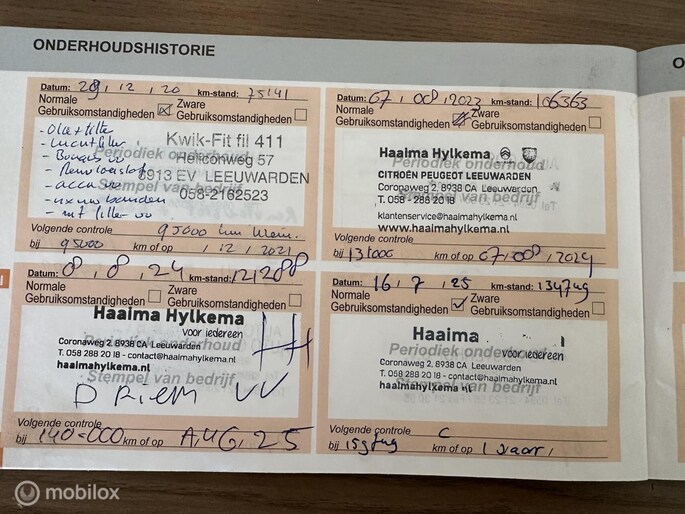 ONDERHOUDSHISTORIE
O
Datum: 29, 12, 20 km-stand: 75141
Normale Gebruiksomstandigheden
Zware Gebruiksomstandigheden
- Olie + filter
- Luchtfilter
- Bougies vv
- Remvloeistof
- accu vv
banden
- filter vv
Kwik-Fit fil 411
Periodiek onderhoud
Heliconweg 57
8913 EV LEEUWARDEN
Stempel van bedrijf
058-2162523
Volgende controle 95000 km
bij 95000 km of op , 12, 2021
Datum: 07, 08, 2023 km-stand: 106363
Normale Gebruiksomstandigheden
Zware Gebruiksomstandigheden
Haaima Hylkema
Periodiek onderhoud
CITROËN PEUGEOT LEEUWARDEN
Coronaweg 2, 8938 CA Leeuwarden
Stempel van bedrijf
T. 058 - 288 20 18
klantenservice@haaimahylkema.nl
www.haaimahylkema.nl
Volgende controle
bij 131000 km of op 07, 08, 2024
Datum: 8, 8, 24 km-stand: 121288
Normale Gebruiksomstandigheden
Zware Gebruiksomstandigheden
Haaima Hylkema
voor iedereen
Periodiek onderhoud
Coronaweg 2, 8938 CA Leeuwarden
T. 058 288 20 18 - contact@haaimahylkema.nl
haaimahylkema.nl
Stempel van bedrijf
D RIEM VV
Volgende controle
bij 140-000 km of op AUG, 25
Datum: 16, 7, 25 km-stand:
Normale Gebruiksomstandigheden
Zware Gebruiksomstandigheden
Haaima
Periodiek onderhoud
voor iedereen
Coronaweg 2, 8938 CA Leeuwarden
T. 058 288 20 18 - contact@haaimahylkema.nl
haaimahylkema.nl
Stempel van bedrijf
Volgende controle
bij km of op 1 jaar,
mobilox